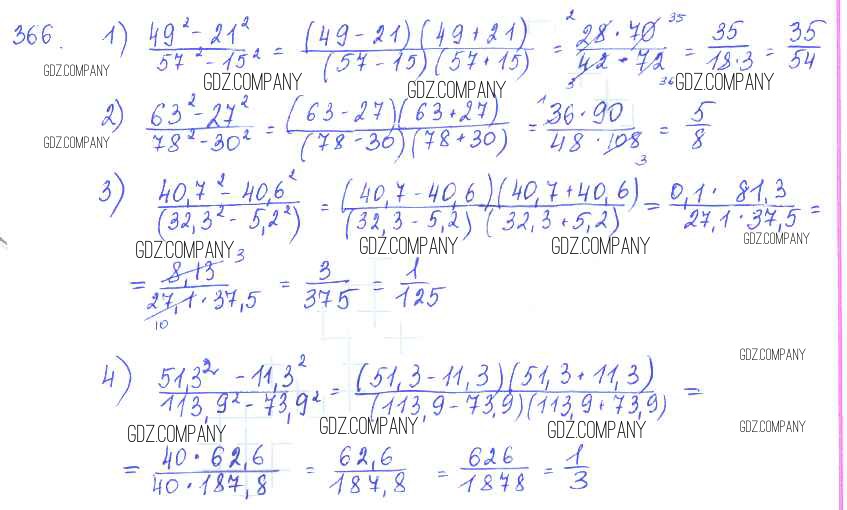 366. 1) (49² - 21²)/(57² - 15²) = ((49 - 21)(49 + 21))/((57 - 15)(57 + 15)) = (28 · 70)/(42 · 72) 2 35 3 36 = 35/(18·3) = 35/54
GDZ.COMPANY GDZ.COMPANY GDZ.COMPANY GDZ.COMPANY
2) (63² - 27²)/(78² - 30²) = ((63 - 27)(63 + 27))/((78 - 30)(78 + 30)) = (36 · 90)/(48 · 108) 1 3 = 5/8
GDZ.COMPANY
3) (40,7² - 40,6²)/(32,3² - 5,2²) = ((40,7 - 40,6)(40,7 + 40,6))/((32,3 - 5,2)(32,3 + 5,2)) = (0,1 · 81,3)/(27,1 · 37,5) =
GDZ.COMPANY GDZ.COMPANY GDZ.COMPANY GDZ.COMPANY
= 8,13/(27,1 · 37,5) 3 10 = 3/375 = 1/125
GDZ.COMPANY
4) (51,3² - 11,3²)/(113,9² - 73,9²) = ((51,3 - 11,3)(51,3 + 11,3))/((113,9 - 73,9)(113,9 + 73,9)) =
GDZ.COMPANY GDZ.COMPANY GDZ.COMPANY GDZ.COMPANY
= (40 · 62,6)/(40 · 187,8) = 62,6/187,8 = 626/1878 = 1/3